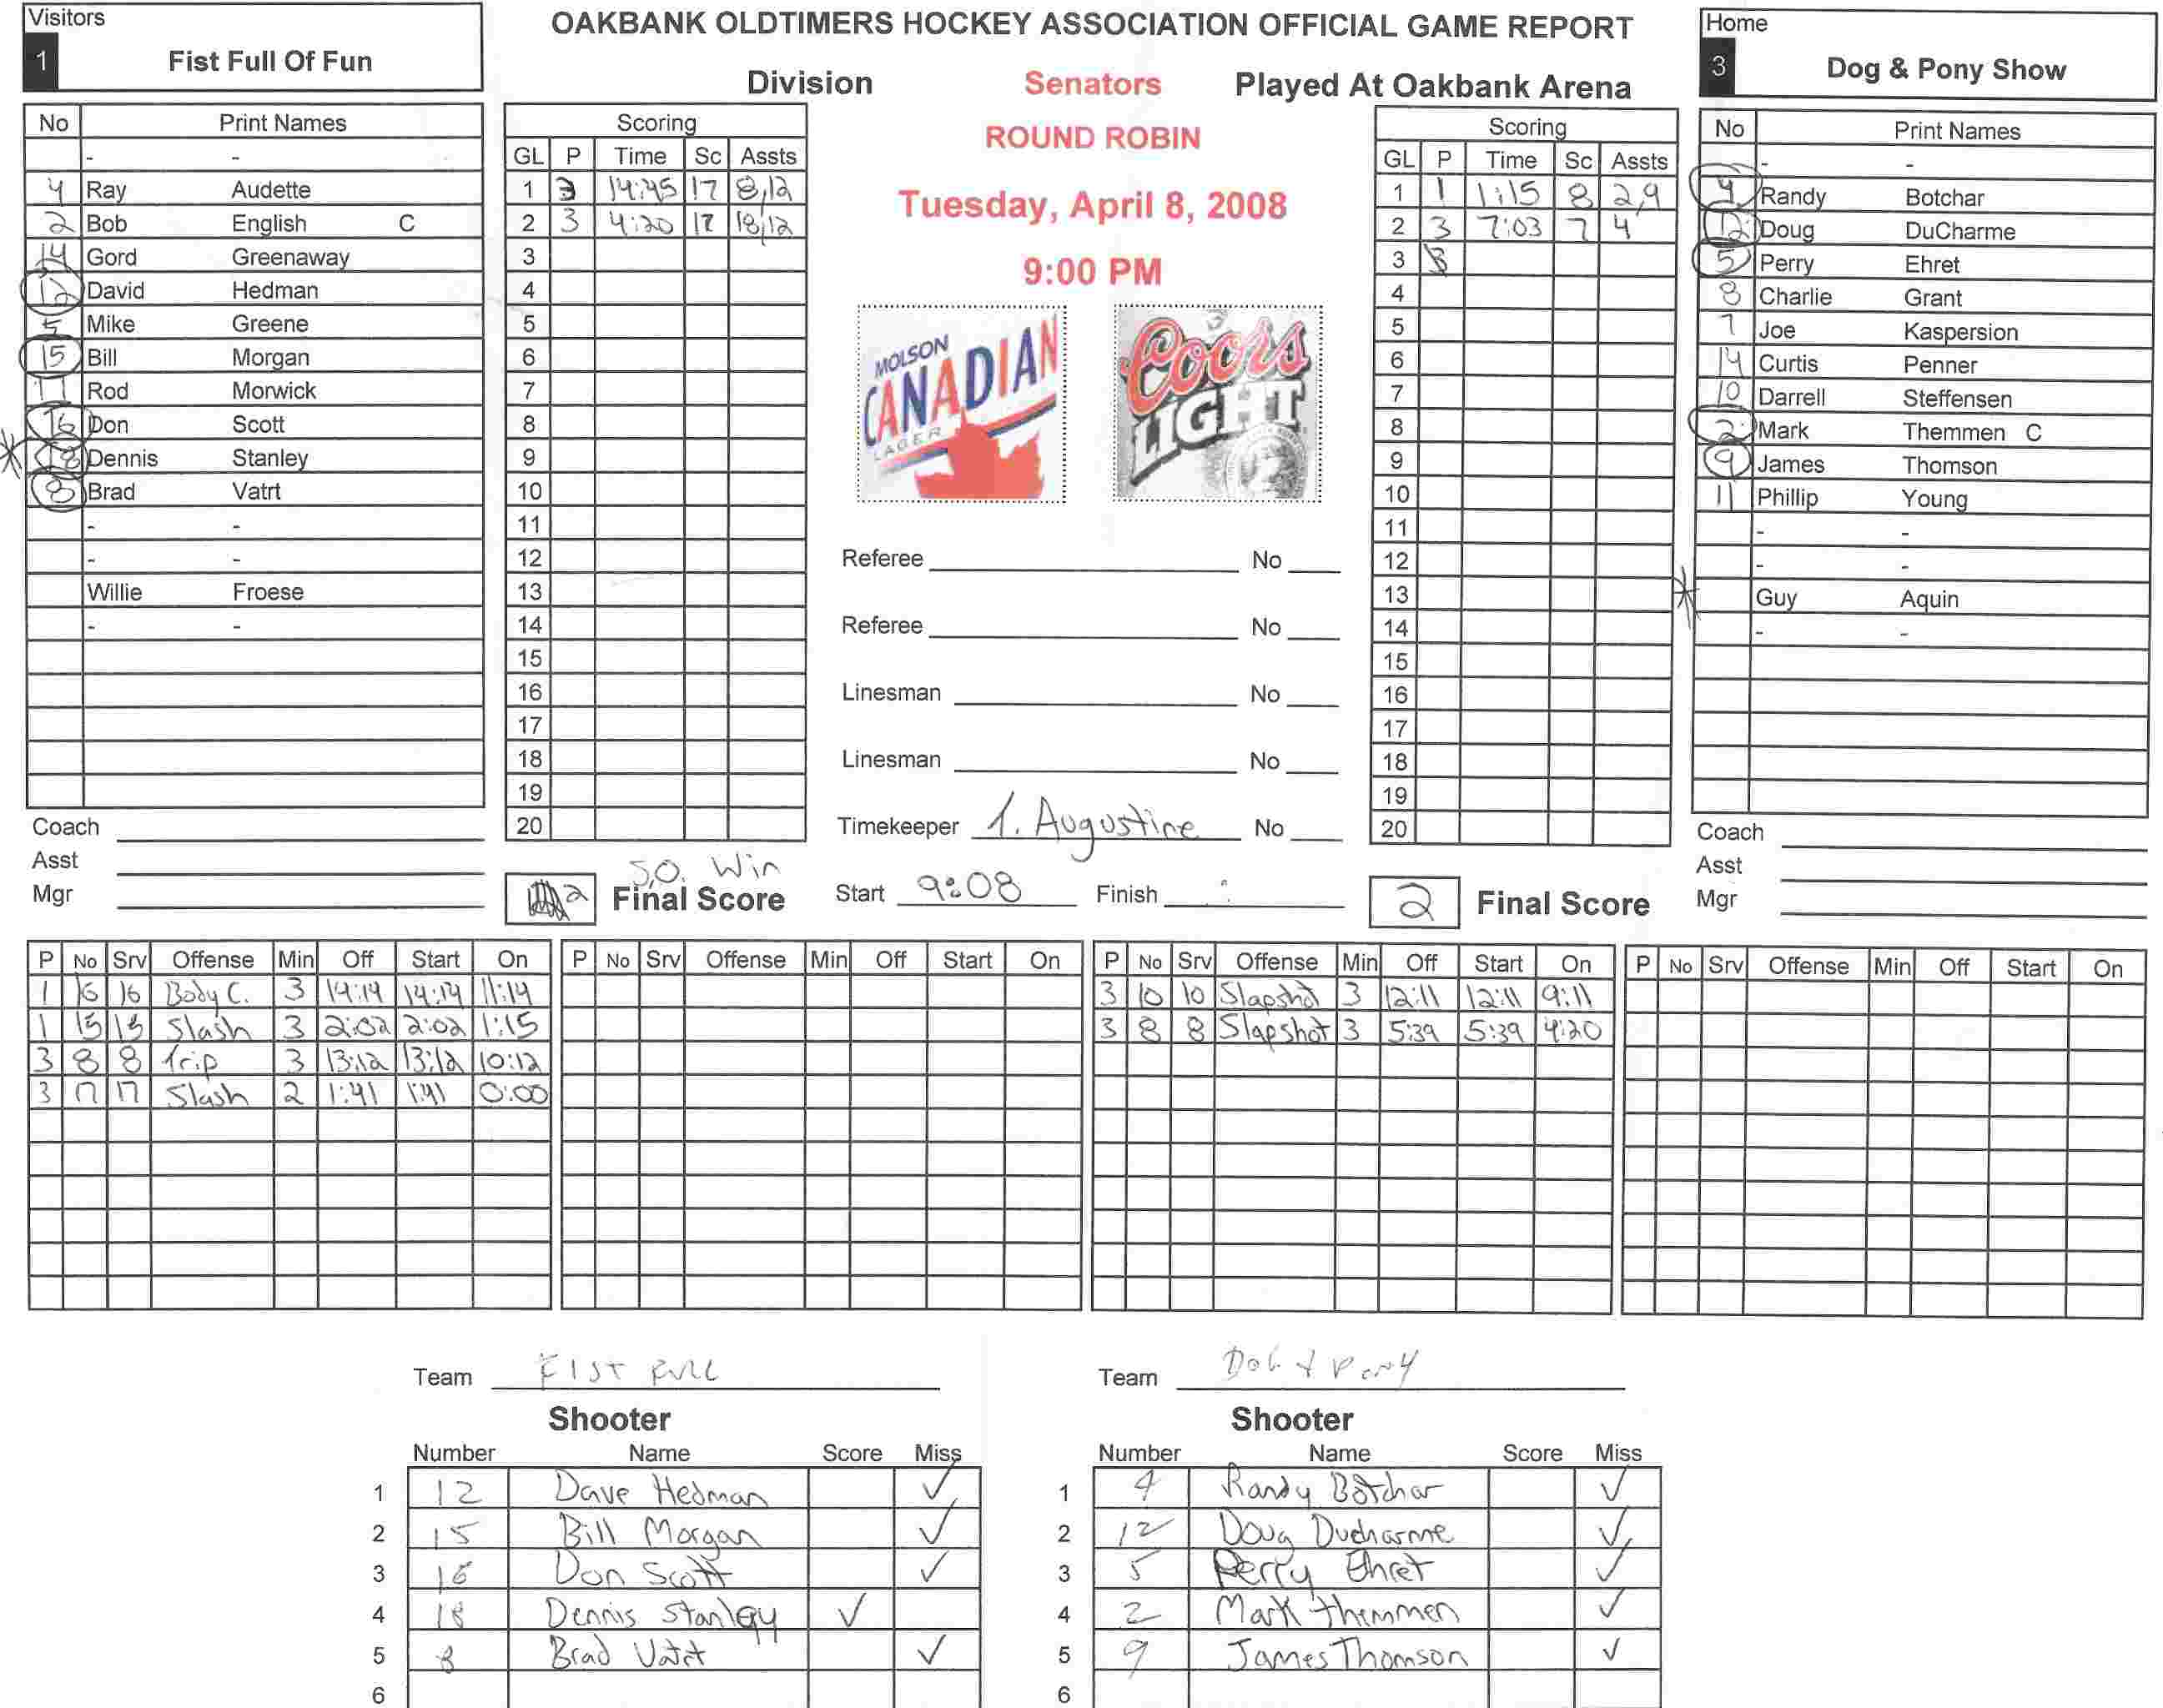 Visitors
1 Fist Full Of Fun
OAKBANK OLDTIMERS HOCKEY ASSOCIATION OFFICIAL GAME REPORT
Home
3 Dog & Pony Show
Division Senators Played At Oakbank Arena
ROUND ROBIN
Tuesday, April 8, 2008
9:00 PM
MOLSON CANADIAN LAGER
Coors LIGHT
No Print Names
- -
4 Ray Audette
2 Bob English C
14 Gord Greenaway
12 David Hedman
5 Mike Greene
15 Bill Morgan
11 Rod Morwick
16 Don Scott
* 18 Dennis Stanley
8 Brad Vatrt
- -
- -
Willie Froese
- -
Coach
Asst
Mgr
Scoring
GL P Time Sc Assts
1 3 14:45 17 8,12
2 3 4:20 17 18,12
3
4
5
6
7
8
9
10
11
12
13
14
15
16
17
18
19
20
S.O. Win
2 Final Score
Referee No
Referee No
Linesman No
Linesman No
Timekeeper 1. Augustine No
Start 9:08 Finish :
Scoring
GL P Time Sc Assts
1 1 1:15 8 2,9
2 3 7:03 7 4
3
4
5
6
7
8
9
10
11
12
13
14
15
16
17
18
19
20
2 Final Score
No Print Names
- -
4 Randy Botchar
12 Doug DuCharme
5 Perry Ehret
8 Charlie Grant
7 Joe Kaspersion
14 Curtis Penner
10 Darrell Steffensen
2 Mark Themmen C
9 James Thomson
11 Phillip Young
- -
- -
* Guy Aquin
- -
Coach
Asst
Mgr
P No Srv Offense Min Off Start On
1 16 16 Body C. 3 14:14 14:14 11:14
1 15 15 Slash 3 2:02 2:02 1:15
3 8 8 Trip 3 13:12 13:12 10:12
3 17 17 Slash 2 1:41 1:41 0:00
P No Srv Offense Min Off Start On
P No Srv Offense Min Off Start On
3 10 10 Slapshot 3 12:11 12:11 9:11
3 8 8 Slapshot 3 5:39 5:39 4:20
P No Srv Offense Min Off Start On
Team FIST FULL
Shooter
Number Name Score Miss
1 12 Dave Hedman ✓
2 15 Bill Morgan ✓
3 16 Don Scott ✓
4 18 Dennis Stanley ✓
5 8 Brad Vatrt ✓
6
Team DOG & PONY
Shooter
Number Name Score Miss
1 4 Randy Botchar ✓
2 12 Doug Ducharme ✓
3 5 Perry Ehret ✓
4 2 Mark Themmen ✓
5 9 James Thomson ✓
6